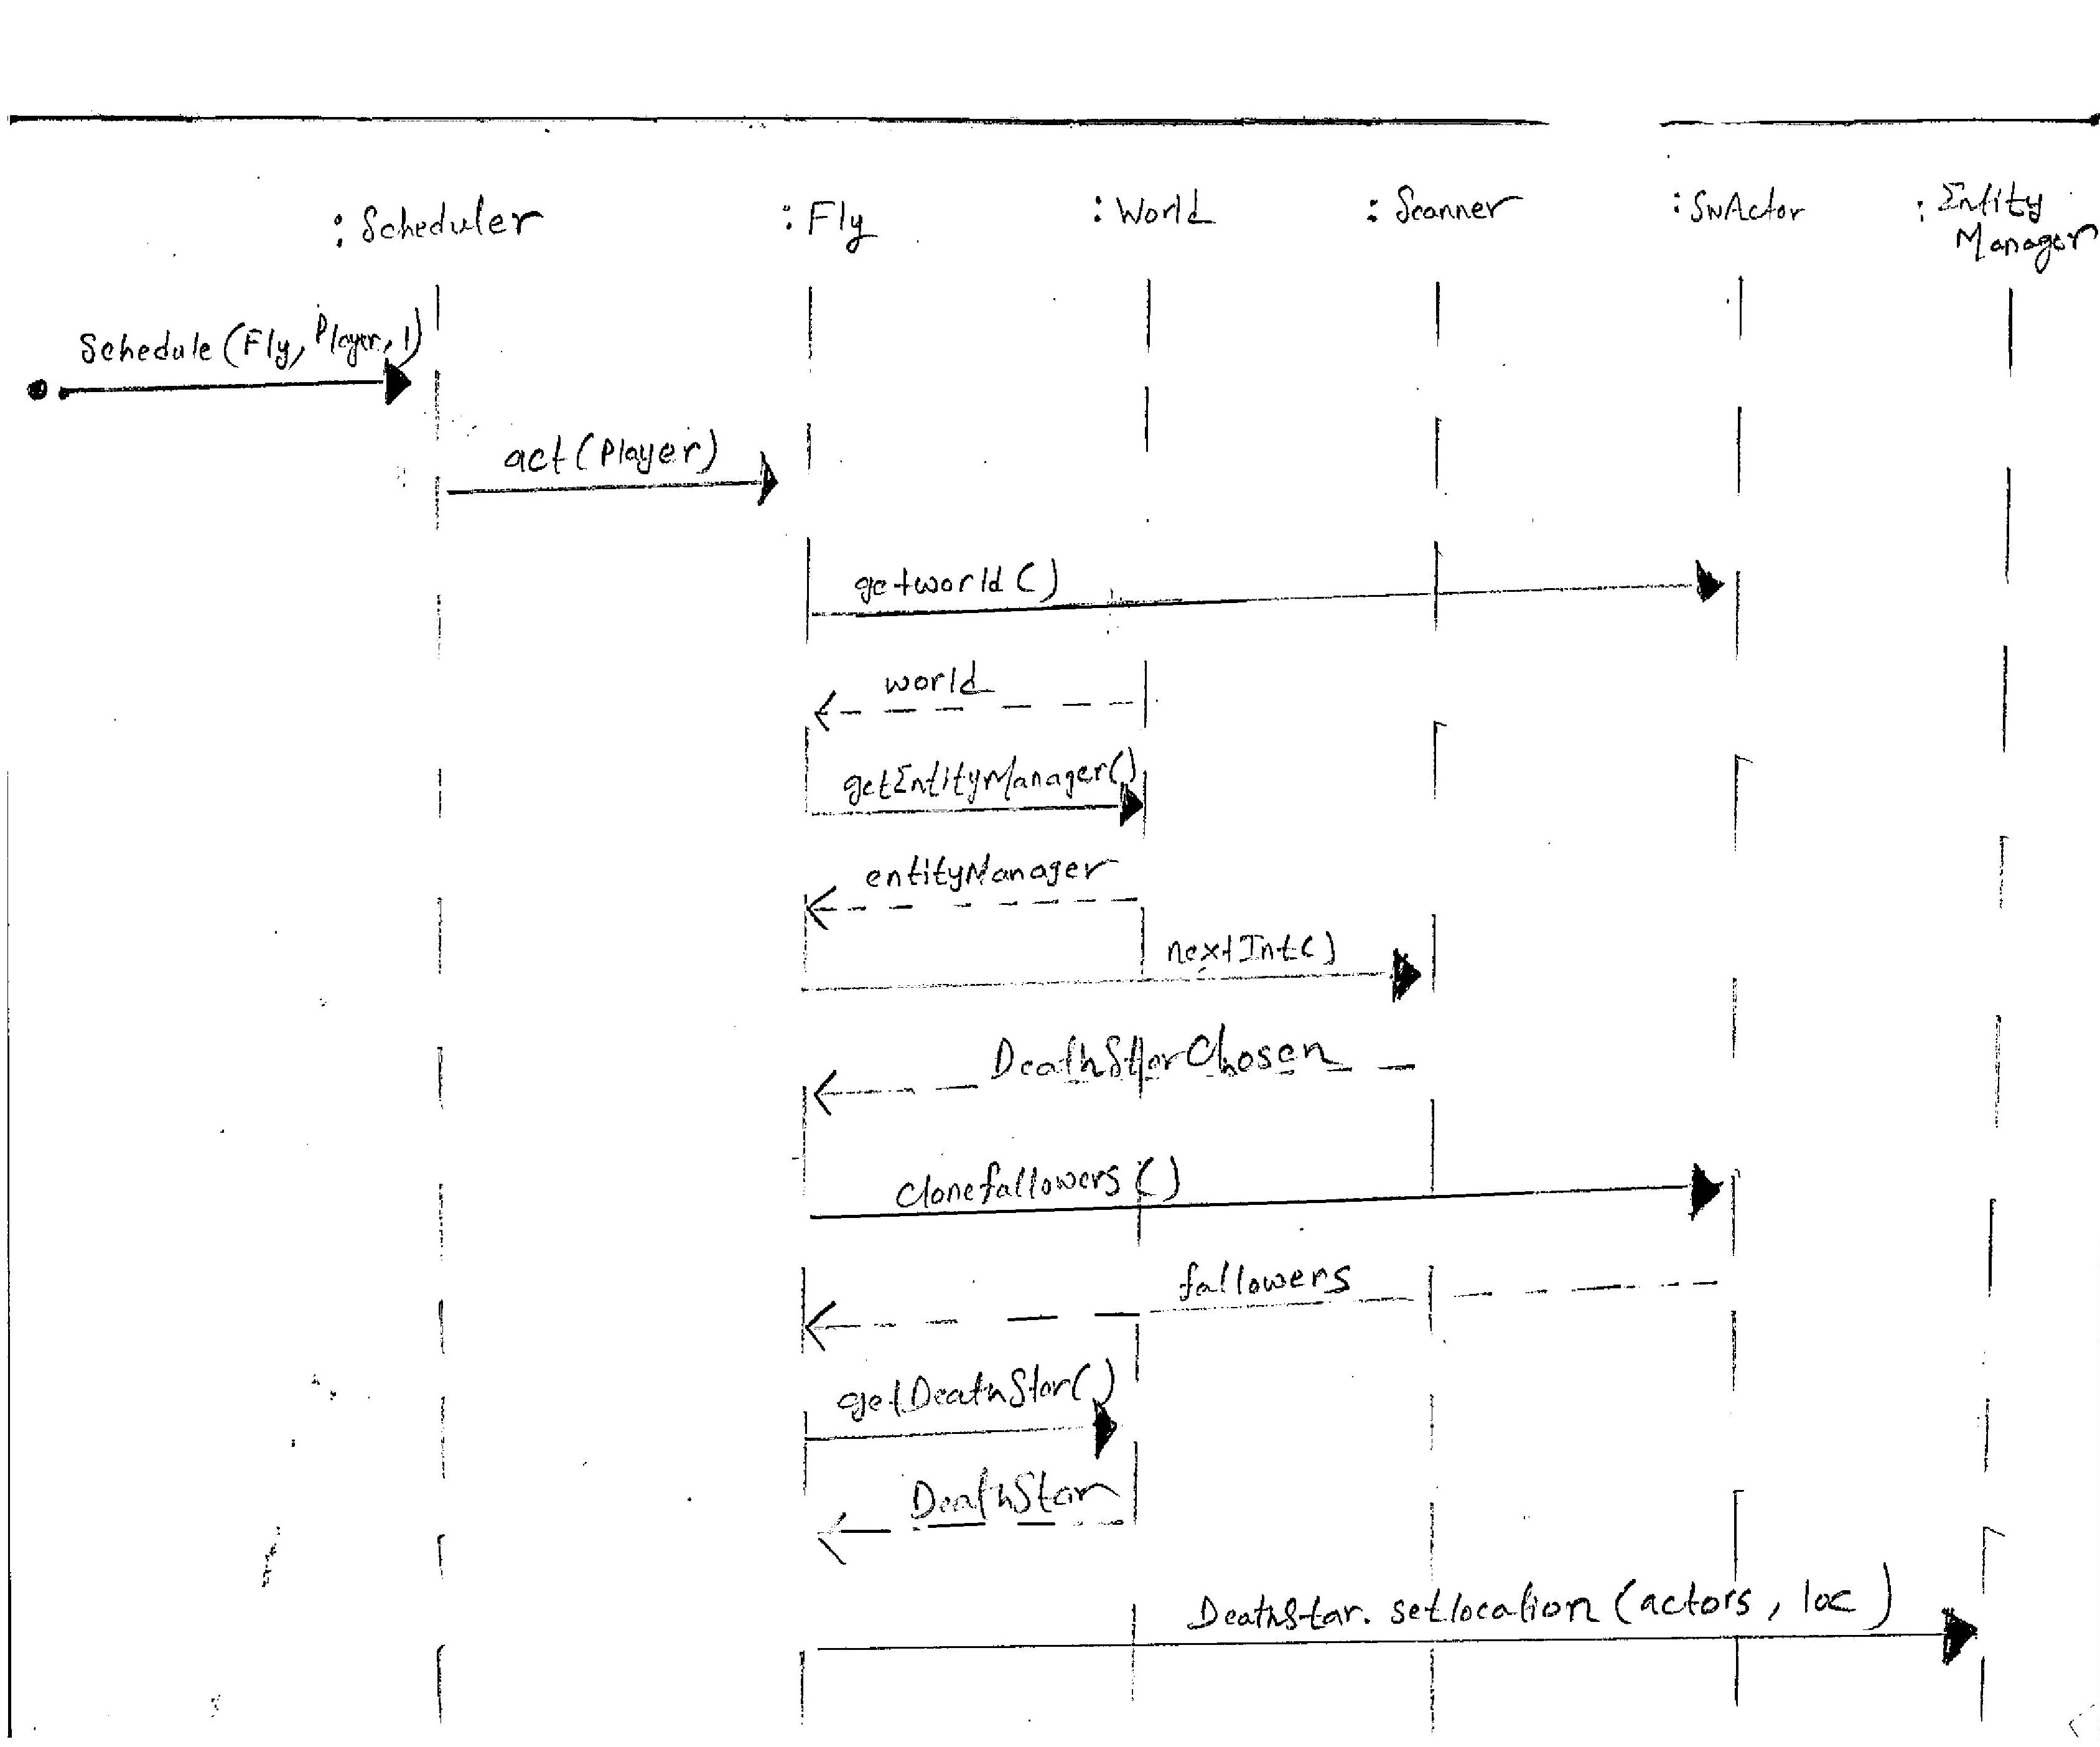 :Scheduler
:Fly
:World
:Scanner
:SwActor
:Entity
Manager
Schedule(Fly, Player, 1)
act(Player)
getworld()
world
getEntityManager()
entityManager
nextInt()
DeathStarChosen
Clonefallowers()
fallowers
getDeathStar()
DeathStar
DeathStar. setlocation (actors, loc)